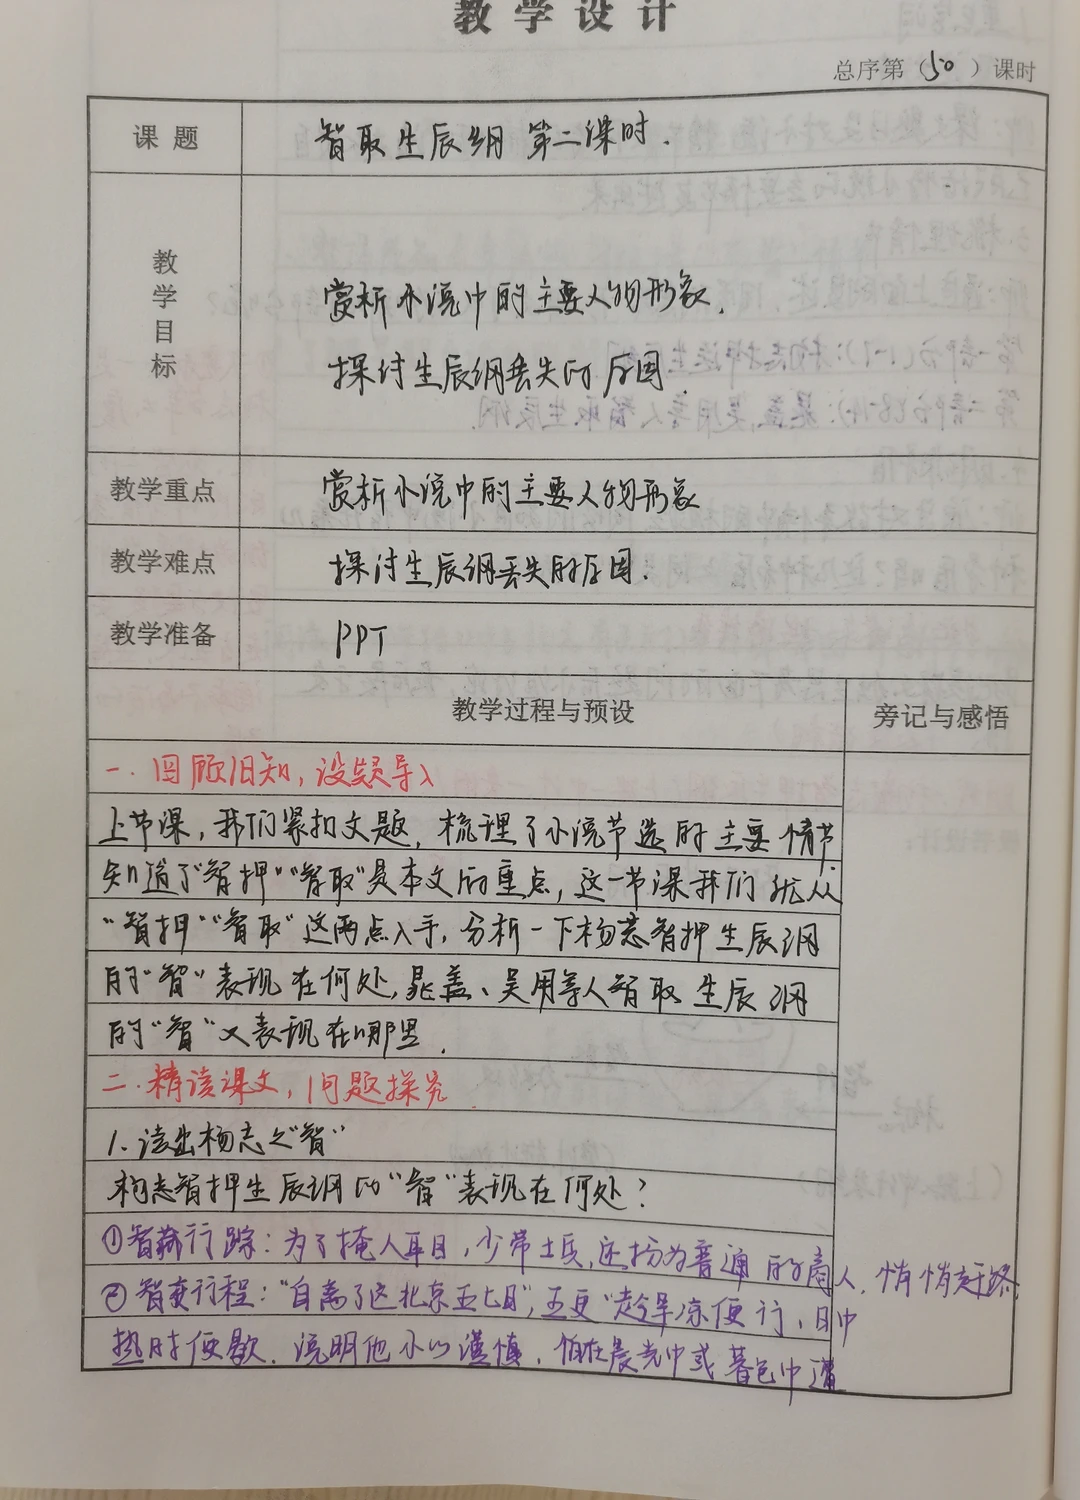 教学设计
总序第（50）课时
课题
智取生辰纲 第二课时.
教学目标
赏析小说中的主要人物形象.
探讨生辰纲丢失的原因.
教学重点
赏析小说中的主要人物形象
教学难点
探讨生辰纲丢失的原因.
教学准备
PPT
教学过程与预设
旁记与感悟
一.回顾旧知,设疑导入
上节课,我们紧扣文题,梳理了小说节选的主要情节.
知道了"智押""智取"是本文的重点,这一节课我们就从
"智押""智取"这两点入手,分析一下杨志智押生辰纲
的"智"表现在何处,晁盖、吴用等人智取生辰纲
的"智"又表现在哪里.
二.精读课文,问题探究.
1.读出杨志之"智"
杨志智押生辰纲的"智"表现在何处?
①智藏行踪:为了掩人耳目,少带士兵,还扮为普通的商人,悄悄赶路.
②智变行程:"自离了这北京五七日",五更"趁早凉便行,日中
热时便歇.说明他小心谨慎,怕在晨光中或暮色中遭